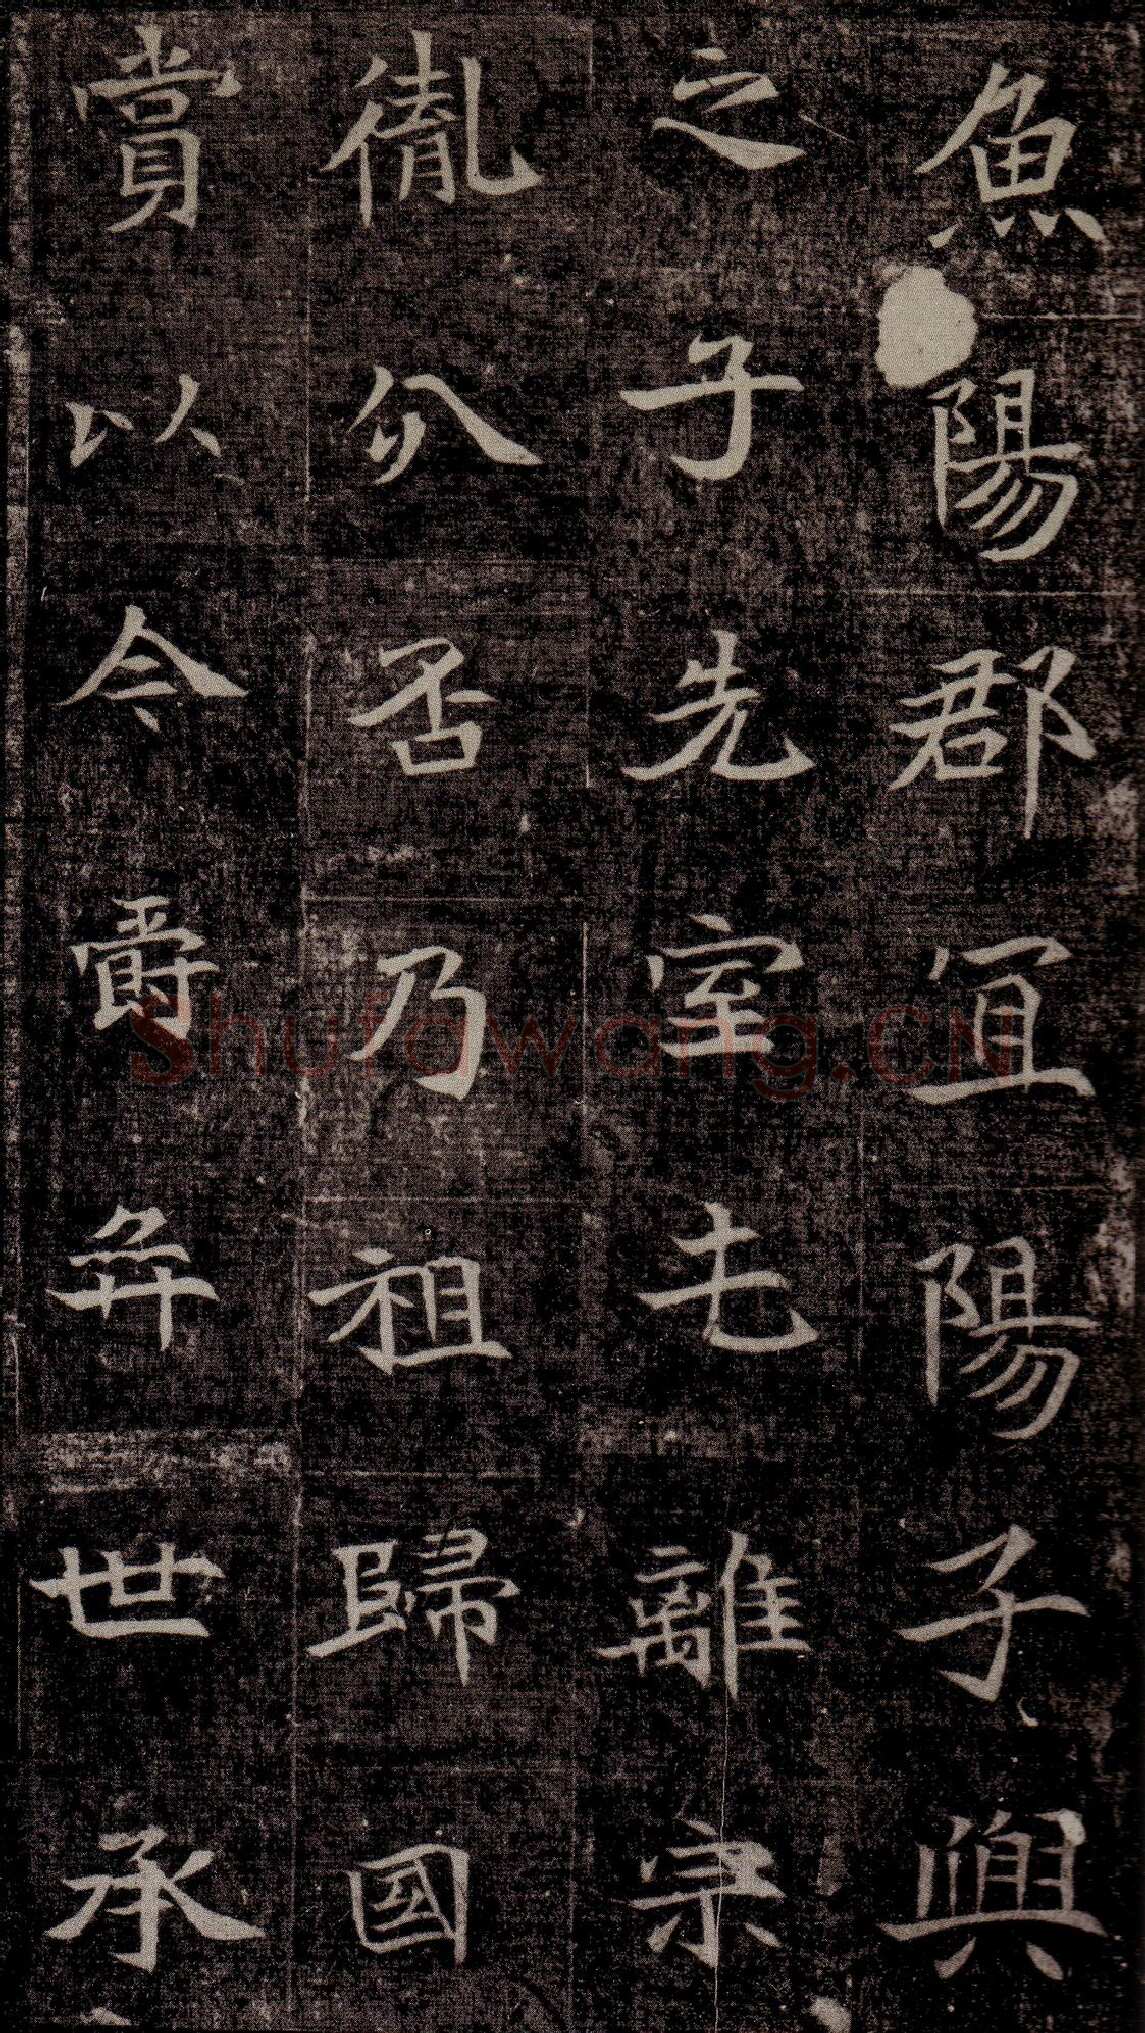 魚陽郡宜陽子興
之子先室屯離宗
胤分否乃祖歸國
賞以今爵弈世承
Shufawang.CN